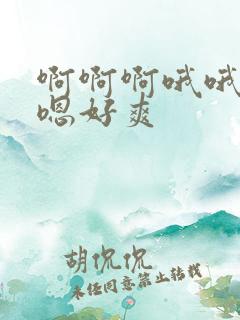 啊啊啊哦哦
嗯好爽
胡侃侃
未经同意禁止转载